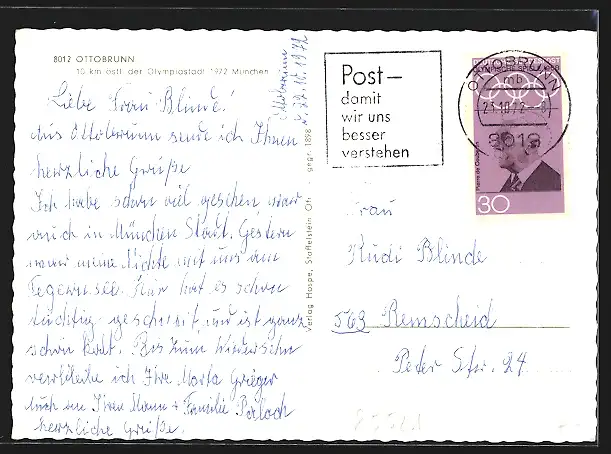 8012 OTTOBRUNN
10 km östl. der Olympiastadt 1972 München
Ottobrunn
d. 22.10.1972
Liebe Frau Blinde!
Aus Ottobrunn sende ich Ihnen
herzliche Grüße
Ich habe schon viel gesehen war
auch in München Stadt. Gestern
war meine Nichte mit uns am
Tegernsee. Hier hat es schon
tüchtig geschneit und ist ganz
schön kalt. Bis zum Wiedersehn
verbleibe ich Ihre Marta Grieger
auch an Ihren Mann + Familie
herzliche Grüße.
Verlag Hospe, Staffelstein Ofr. gegr. 1898
Post–
damit
wir uns
besser
verstehen
OTTOBRUNN
mb
23.10.72
8012
Pierre de Coubertin
30
Frau
Rudi Blinde
563 Remscheid
Peter Str. 24